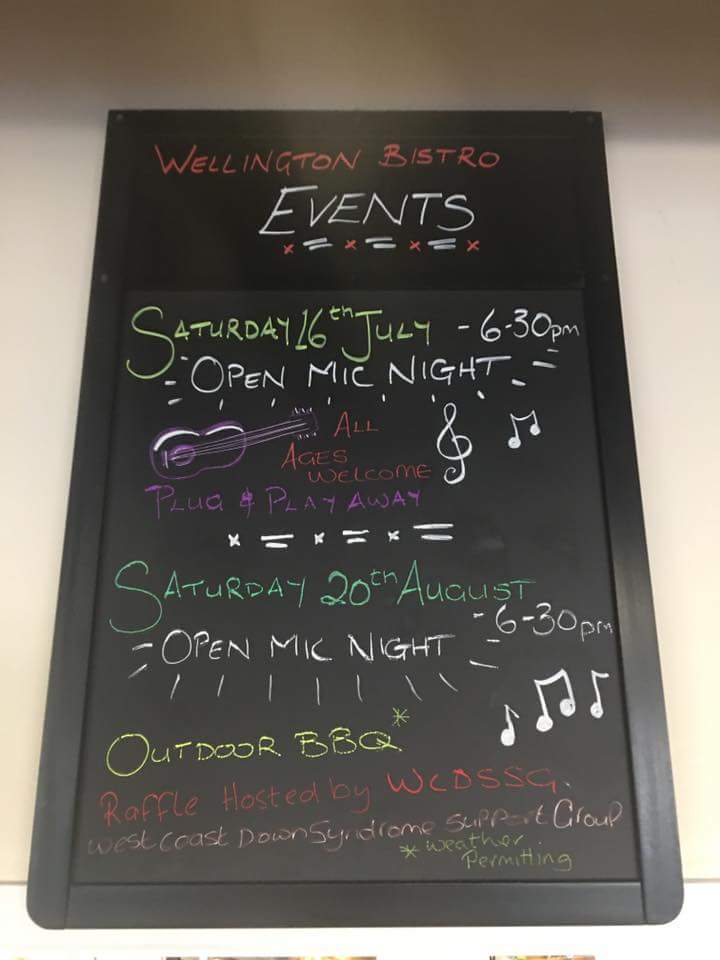 WELLINGTON BISTRO
EVENTS
SATURDAY 16th JULY - 6-30pm
OPEN MIC NIGHT
ALL
AGES
WELCOME
PLUG & PLAY AWAY
SATURDAY 20th AUGUST
- 6-30pm
OPEN MIC NIGHT
OUTDOOR BBQ*
Raffle Hosted by WCDSSG.
West Coast Down Syndrome Support Group
* Weather
Permitting